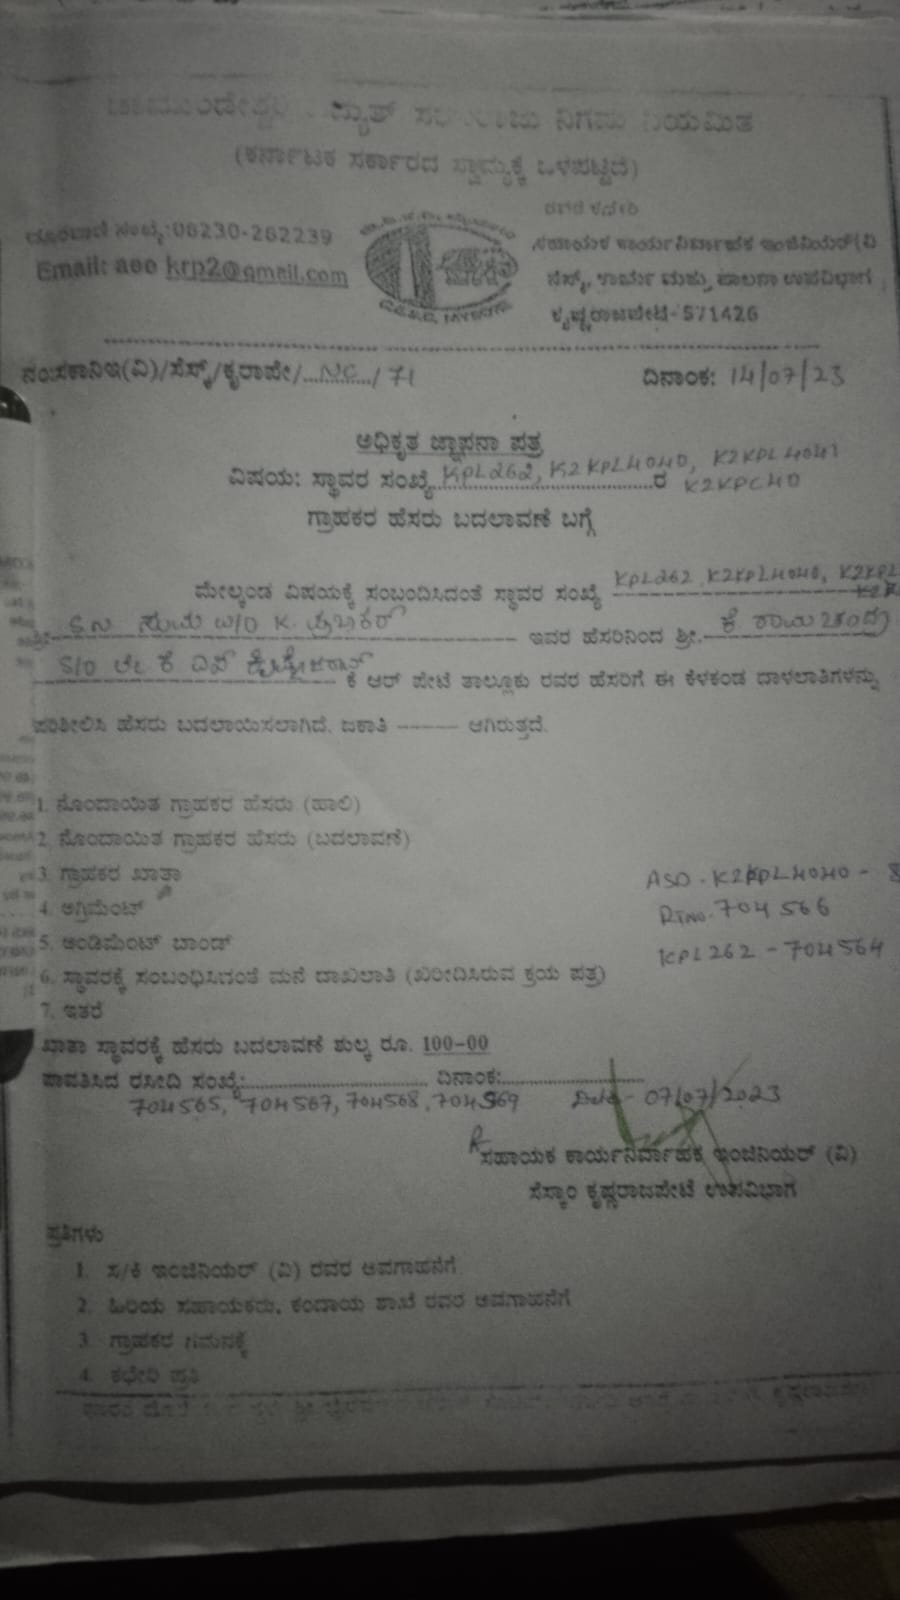 ನಿಗಮ ನಿಯಮಿತ
(ಕರ್ನಾಟಕ ಸರ್ಕಾರದ ಸ್ವಾಮ್ಯಕ್ಕೆ ಒಳಪಟ್ಟಿದೆ)
ದೂರವಾಣಿ ಸಂಖ್ಯೆ:08230-262239
Email: aeo krp2@gmail.com
ಸಹಾಯಕ ಕಾರ್ಯನಿರ್ವಾಹಕ ಇಂಜಿನಿಯರ್(ವಿ
ಸೆಸ್ಕ್, ಕಾರ್ಯ ಮತ್ತು ಪಾಲನಾ ಉಪವಿಭಾಗ
ಕೃಷ್ಣರಾಜಪೇಟೆ-571426
ನಂ:ಸಕಾನಿಇ(ವಿ)/ಸೆಸ್ಕ್/ಕೃರಾಪೇ/...NC.../71
ದಿನಾಂಕ: 14/07/23
ಅಧಿಕೃತ ಜ್ಞಾಪನಾ ಪತ್ರ
ವಿಷಯ: ಸ್ಥಾವರ ಸಂಖ್ಯೆ KPL262, K2KPL4040, K2KPL4041 ರ K2KPC40
ಗ್ರಾಹಕರ ಹೆಸರು ಬದಲಾವಣೆ ಬಗ್ಗೆ
ಮೇಲ್ಕಂಡ ವಿಷಯಕ್ಕೆ ಸಂಬಂದಿಸಿದಂತೆ ಸ್ಥಾವರ ಸಂಖ್ಯೆ KPL262, K2KPL4040, K2KPL
ಶ್ರೀ. SN ಸುಮ W/O K. ಪ್ರಭಾಕರ್ ಇವರ ಹೆಸರಿನಿಂದ ಶ್ರೀ. ಕೆ ರಾಮಚಂದ್ರ
S/O ಲೇ ಕೆ ಎನ್ ಕೆ ಆರ್ ಪೇಟೆ ತಾಲ್ಲೂಕು ರವರ ಹೆಸರಿಗೆ ಈ ಕೆಳಕಂಡ ದಾಳಲಾತಿಗಳನ್ನು
ಪರಿಶೀಲಿಸಿ ಹೆಸರು ಬದಲಾಯಿಸಲಾಗಿದೆ. ಜಕಾತಿ ------ ಆಗಿರುತ್ತದೆ.
1. ನೊಂದಾಯಿತ ಗ್ರಾಹಕರ ಹೆಸರು (ಹಾಲಿ)
2. ನೊಂದಾಯಿತ ಗ್ರಾಹಕರ ಹೆಸರು (ಬದಲಾವಣೆ)
3. ಗ್ರಾಹಕರ ಖಾತಾ
ASD - K2KPL4040 - 8
4. ಅಗ್ರಿಮೆಂಟ್
RTNO. 704566
5. ಇಂಡಿಮೆಂಟ್ ಬಾಂಡ್
KPL262 - 704564
6. ಸ್ಥಾವರಕ್ಕೆ ಸಂಬಂಧಿಸಿದಂತೆ ಮನೆ ದಾಖಲಾತಿ (ಖರೀದಿಸಿರುವ ಕ್ರಯ ಪತ್ರ)
7. ಇತರೆ
ಖಾತಾ ಸ್ಥಾವರಕ್ಕೆ ಹೆಸರು ಬದಲಾವಣೆ ಶುಲ್ಕ ರೂ. 100-00
ಪಾವತಿಸಿದ ರಸೀದಿ ಸಂಖ್ಯೆ:.................... ದಿನಾಂಕ:....................
704565, 704567, 704568, 704569 Date - 07/07/2023
ಸಹಾಯಕ ಕಾರ್ಯನಿರ್ವಾಹಕ ಇಂಜಿನಿಯರ್ (ವಿ)
ಸೆಸ್ಕಾಂ ಕೃಷ್ಣರಾಜಪೇಟೆ ಉಪವಿಭಾಗ
ಪ್ರತಿಗಳು
1. ಸ/ಕಿ ಇಂಜಿನಿಯರ್ (ವಿ) ರವರ ಅವಗಾಹನೆಗೆ
2. ಹಿರಿಯ ಸಹಾಯಕರು, ಕಂದಾಯ ಶಾಖೆ ರವರ ಅವಗಾಹನೆಗೆ
3. ಗ್ರಾಹಕರ ಗಮನಕ್ಕೆ
4. ಕಛೇರಿ ಪ್ರತಿ